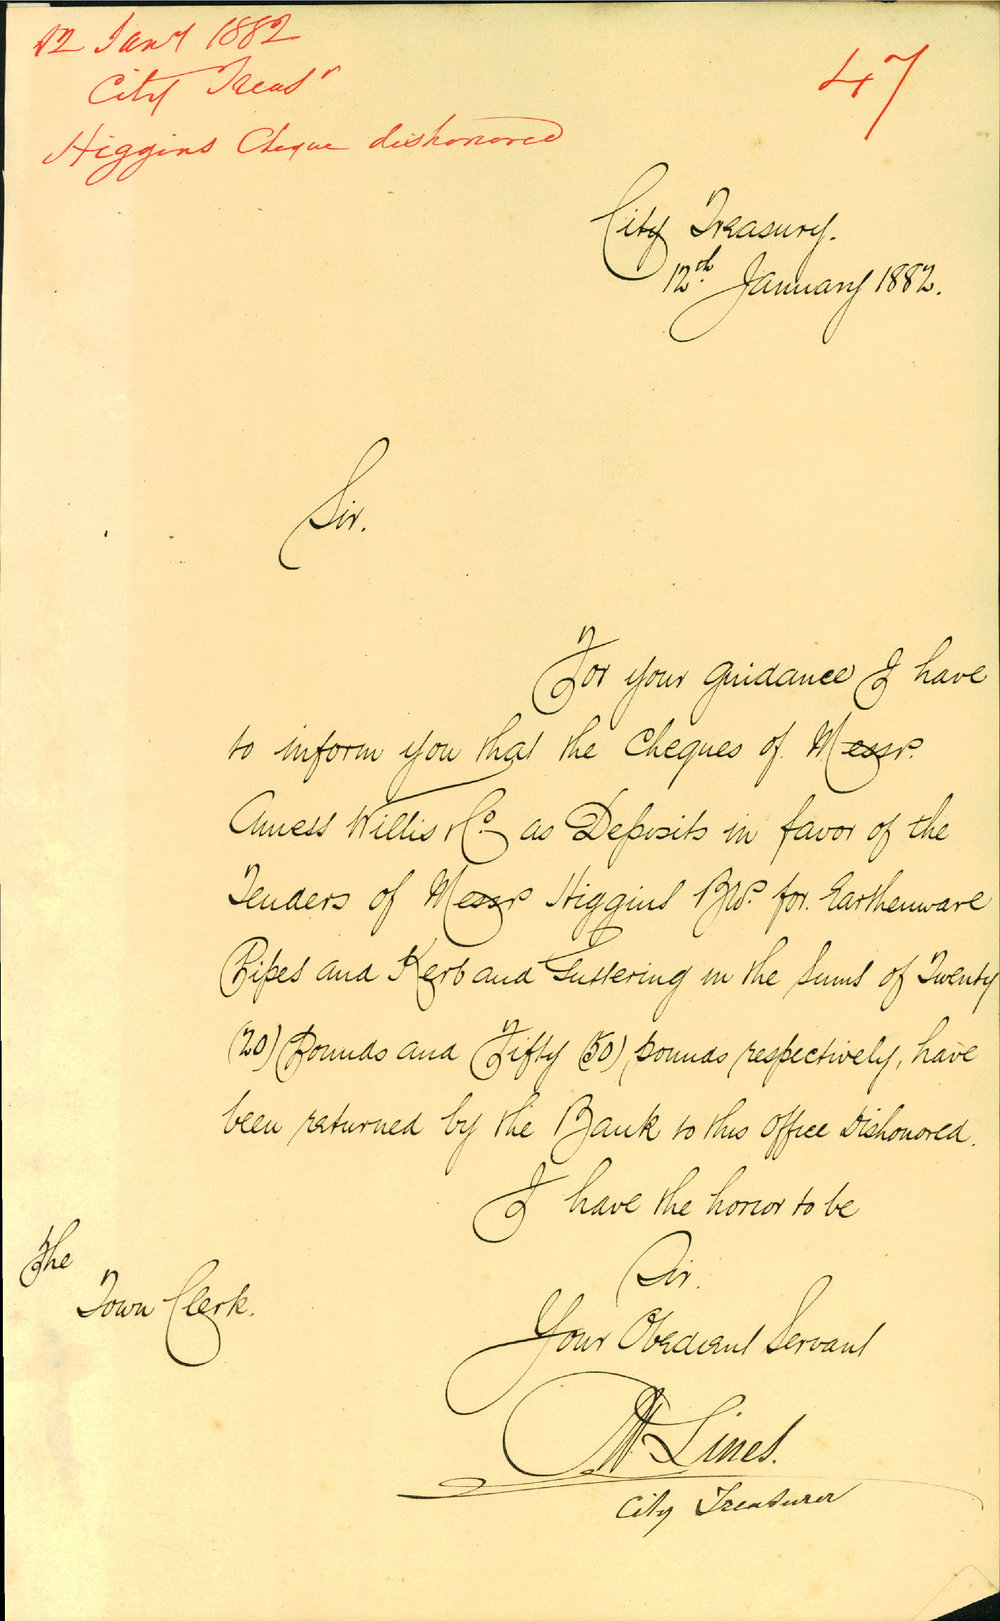 12 Jany 1882
City Treasr
Higgins Cheque dishonored
47
City Treasury.
12th January 1882.
Sir.
For your guidance I have
to inform you that the Cheques of Messrs.
Amess Willis & Co as Deposits in favor of the
Tenders of Messrs Higgins Bros. for Earthenware
Pipes and Kerb and Guttering in the sums of Twenty
(20) Pounds and Fifty (50) pounds respectively, have
been returned by the Bank to this Office Dishonored.
I have the honor to be
Sir.
Your Obedient Servant
Lines.
City Treasurer
The
Town Clerk.